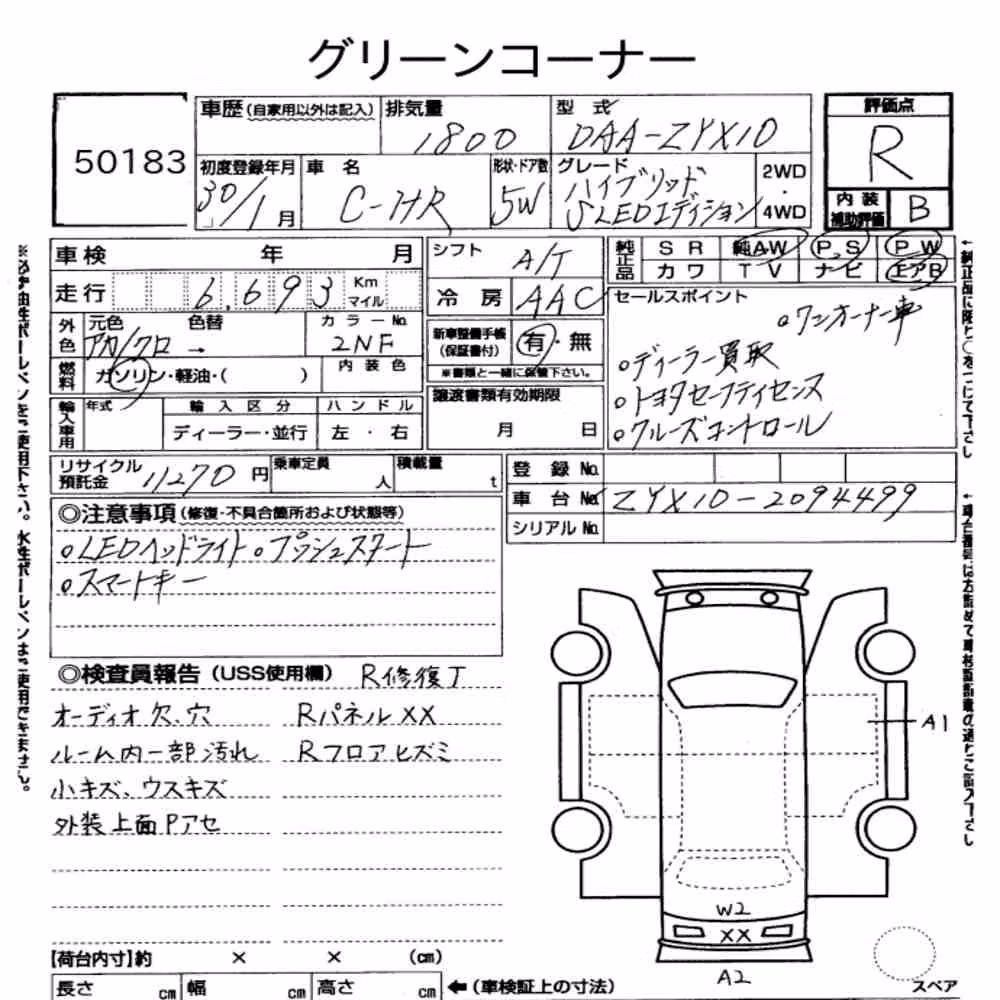 グリーンコーナー
50183
車歴(自家用以外は記入)
排気量
1800
型式
DAA-ZYX10
評価点
R
初度登録年月
30/1月
車名
C-HR
形状・ドア数
5W
グレード
ハイブリッド
S LEDエディション
2WD
・
4WD
内装
補助評価
B
車検 年 月
シフト
A/T
純正品
SR 純AW P.S PW
カワ TV ナビ エアB
走行 6,693 Km
マイル
冷房 AAC
セールスポイント
○ワンオーナー車
○ディーラー買取
○トヨタセーフティセンス
○クルーズコントロール
外色
元色 色替
アカ/クロ →
カラーNo.
2NF
新車整備手帳
(保証書付)
有・無
※書類と一緒に保管下さい。
燃料
ガソリン・軽油・( )
内装色
譲渡書類有効期限
月 日
輸入車用
年式
輸入区分
ディーラー・並行
ハンドル
左・右
リサイクル
預託金
11270円
乗車定員
人
積載量
t
登録No.
車台No. ZYX10-2094499
シリアルNo.
◎注意事項(修復・不具合箇所および状態等)
○LEDヘッドライト○プッシュスタート
○スマートキー
◎検査員報告(USS使用欄) R修復丁
オーディオ欠、穴 RパネルXX
ルーム内一部汚れ Rフロアヒズミ
小キズ、ウスキズ
外装上面Pアセ
A1
W2
XX
A2
スペア
【荷台内寸】約 × × (cm)
長さ cm 幅 cm 高さ cm ←(車検証上の寸法)